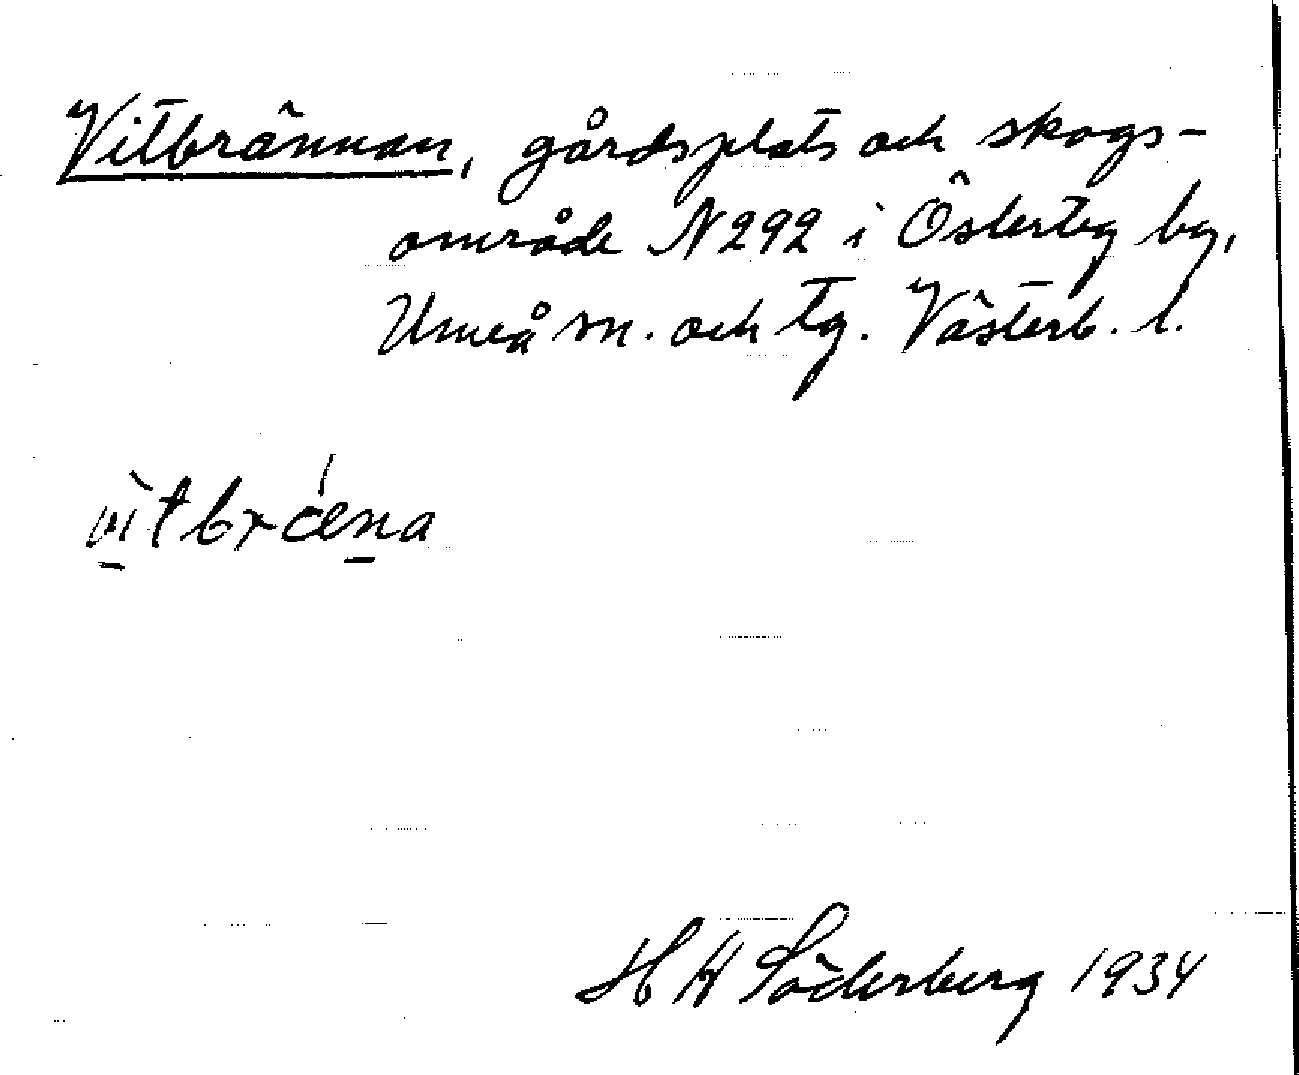 Vitbrännan, gårdsplats och skogs-
område N292 i Österteg by,
Umeå sn. och tg. Västerb. l.
vìtbrǽna
H W Söderberg 1934